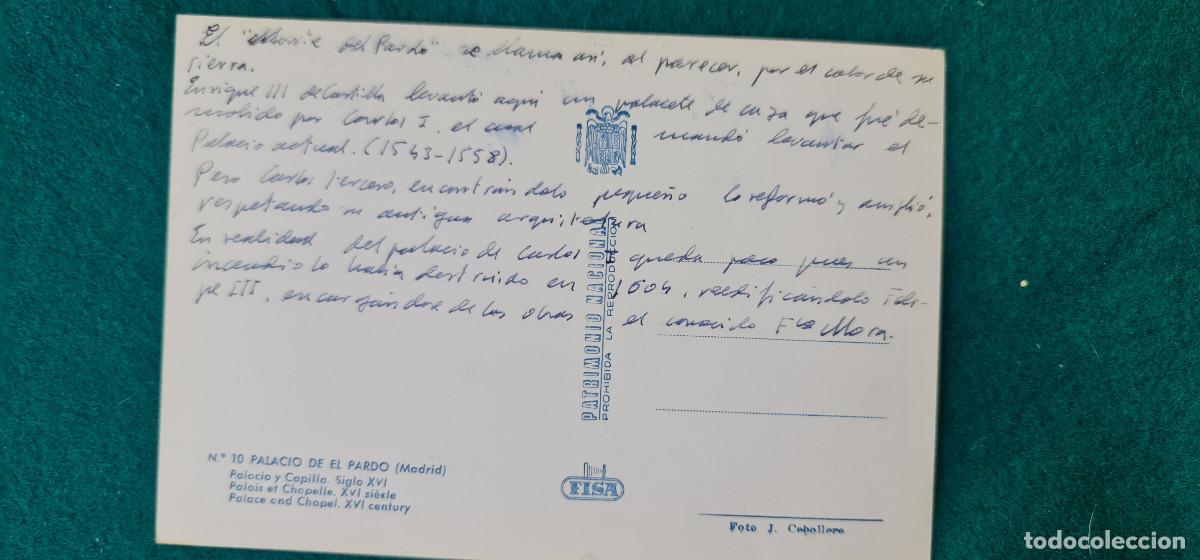 El " del Pardo" se llama así, al parecer, por el color de su
tierra.
Enrique III de Castilla levantó aquí un palacete de caza que fué de-
molido por Carlos I, el cual mandó levantar el
Palacio actual. (1543-1558).
Pero Carlos Tercero, encontrándolo pequeño lo reformó y amplió,
respetando su antigua arquitectura
En realidad del palacio de Carlos I queda poco pues un
incendio lo había destruido en 1604, reedificándolo Feli-
pe III, encargándose de las obras el conocido Fco Mora.
PATRIMONIO NACIONAL
PROHIBIDA LA REPRODUCCION
N.º 10 PALACIO DE EL PARDO (Madrid)
Palacio y Capilla. Siglo XVI
Palais et Chapelle. XVI siècle
Palace and Chapel. XVI century
FISA
Foto J. Cebollero
todocoleccion